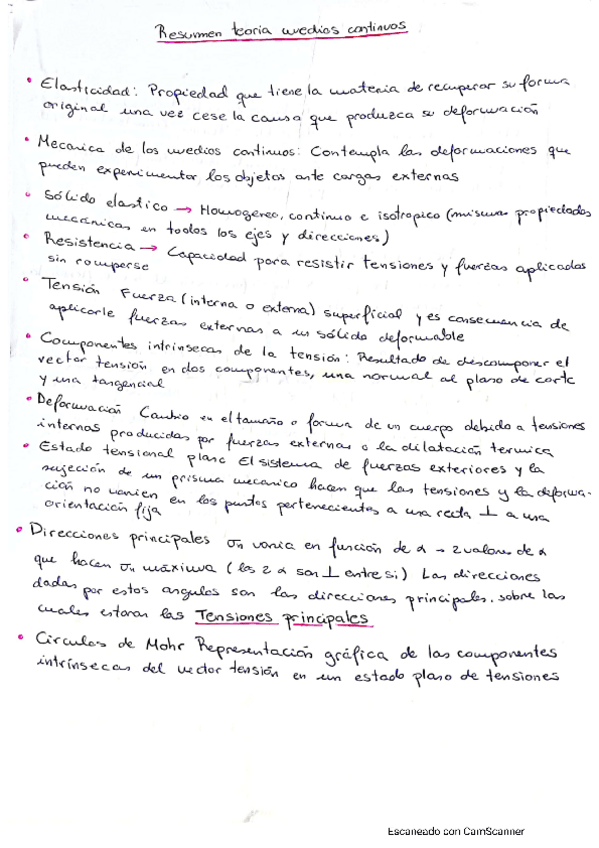 Resumen teoria medios continuos
• Elasticidad: Propiedad que tiene la materia de recuperar su forma
original una vez cese la causa que produzca su deformación
• Mecanica de los medios continuos: Contempla las deformaciones que
pueden experimentar los objetos ante cargas externas
• Sólido elastico → Homogeneo, continuo e isotropico (mismas propiedades
mecánicas en todos los ejes y direcciones)
• Resistencia → Capacidad para resistir tensiones y fuerzas aplicadas
sin romperse
• Tensión Fuerza (interna o externa) superficial y es consecuencia de
aplicarle fuerzas externas a un sólido deformable
• Componentes intrinsecas de la tensión: Resultado de descomponer el
vector tensión en dos componentes, una normal al plano de corte
y una tangencial
• Deformación Cambio en el tamaño o forma de un cuerpo debido a tensiones
internas producidas por fuerzas externas o la dilatación termica
• Estado tensional plano El sistema de fuerzas exteriores y la
sujeción de un prisma mecanico hacen que las tensiones y la deforma-
ción no varien en los puntos pertenecientes a una recta ⊥ a una
orientación fija
• Direcciones principales σn varia en función de α → 2 valores de α
que hacen σn máxima (los 2 α son ⊥ entre si) Las direcciones
dadas por estos angulos son las direcciones principales. sobre las
cuales estaran las Tensiones principales
• Circulos de Mohr Representación gráfica de las componentes
intrínsecas del vector tensión en un estado plano de tensiones
Escaneado con CamScanner